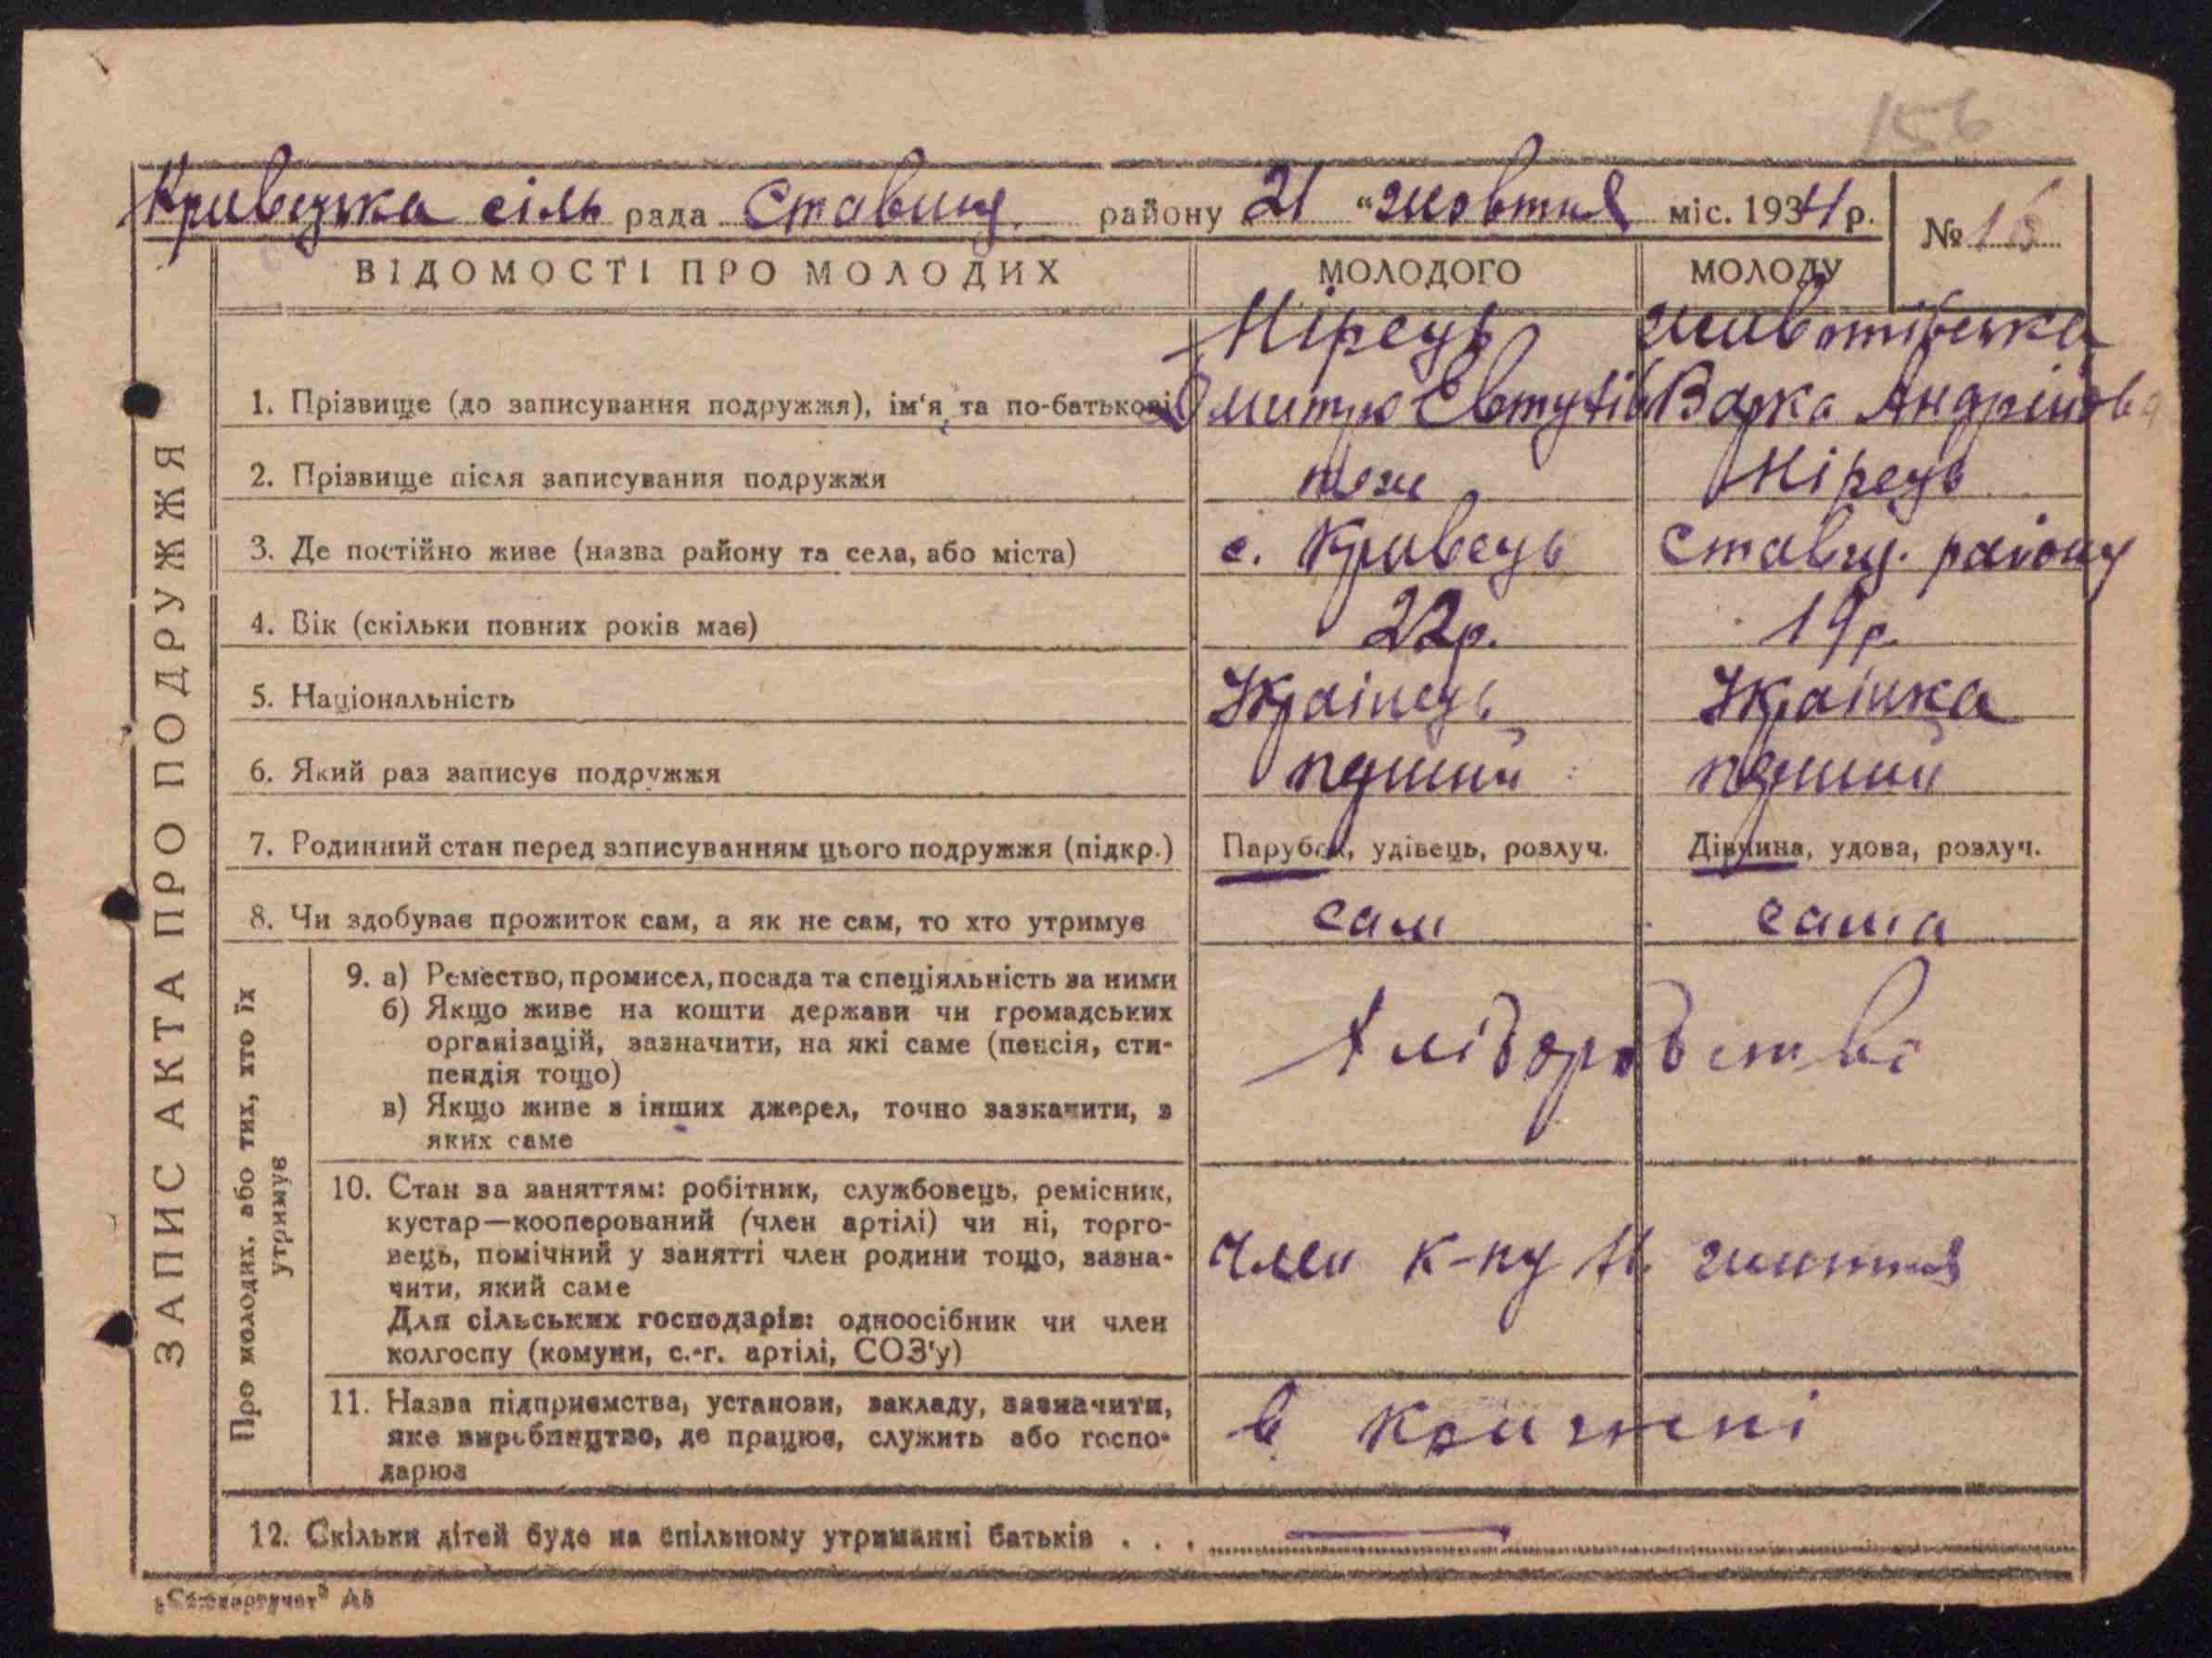 156
Кривецька сіль рада Ставищ. району 21 "жовтня міс. 1934 р. № 16
ВІДОМОСТІ ПРО МОЛОДИХ МОЛОДОГО МОЛОДУ
Нірець Животівська
1. Прізвище (до записування подружжя), ім'я та по-батькові Дмитро Євтухів Варка Андрійова
2. Прізвище після записування подружжя теж Нірець
3. Де постійно живе (назва району та села, або міста) с. Кривець Ставищ. району
4. Вік (скільки повних років має) 22р. 19р.
5. Національність Українець Українка
6. Який раз записує подружжя перший перший
7. Родинний стан перед записуванням цього подружжя (підкр.) Парубок, удівець, розлуч. Дівчина, удова, розлуч.
8. Чи здобуває прожиток сам, а як не сам, то хто утримує сам сама
ЗАПИС АКТА ПРО ПОДРУЖЖЯ
Про молодих, або тих, хто їх
утримує
9. а) Ремество, промисел, посада та спеціяльність за ними
б) Якщо живе на кошти держави чи громадських
організацій, зазначити, на які саме (пенсія, сти-
пендія тощо)
в) Якщо живе з інших джерел, точно зазначити, з
яких саме
Хліборобство
10. Стан за заняттям: робітник, службовець, ремісник,
кустар—кооперований (член артілі) чи ні, торго-
вець, помічний у занятті член родини тощо, зазна-
чити, який саме
Для сільських господарів: одноосібник чи член
колгоспу (комуни, с.-г. артілі, СОЗ'у)
член к-пу Н. життя
11. Назва підприємства, установи, закладу, зазначити,
яке виробництво, де працює, служить або госпо-
дарює
в
12. Скільки дітей буде на спільному утриманні батьків . . .